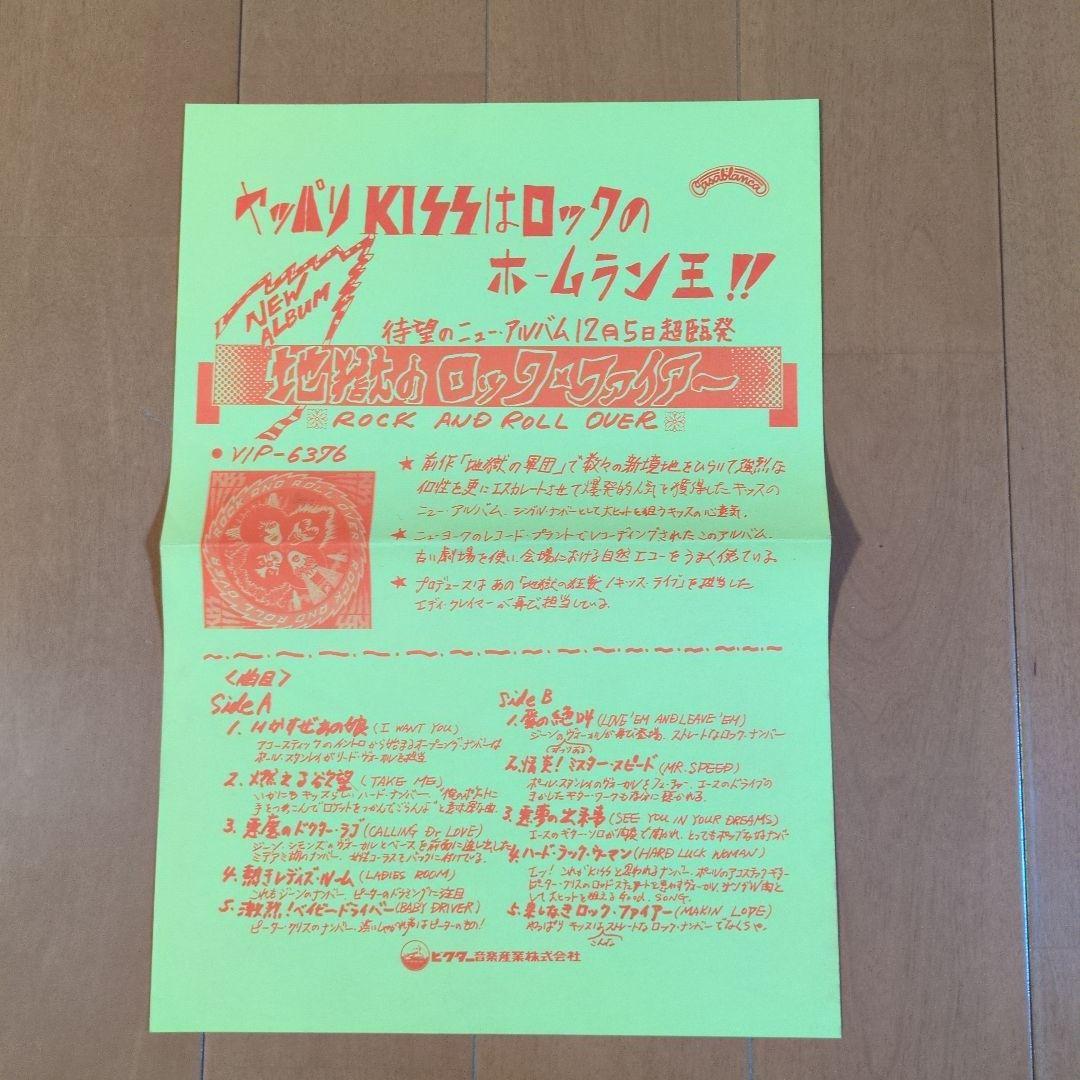 Casablanca
ヤッパリ KISSはロックの
ホームラン王!!
NEW
ALBUM
待望のニュー・アルバム 12月5日超臨発
地獄のロック・ファイアー
ROCK AND ROLL OVER
● VIP-6376
★ 前作「地獄の軍団」で数々の新境地をひらいて強烈な
個性を更にエスカレートさせて爆発的人気を獲得したキッスの
ニュー・アルバム。シングル・ナンバーとして大ヒットを狙うキッスの心意気。
★ ニューヨークのレコード・プラントでレコーディングされたこのアルバム、
古い劇場を使い、会場における自然エコーをうまく使ている。
★ プロデュースはあの「地獄の狂獣/キッス・ライブ」を担当した
エディ・クレイマーが再び担当している。
ROCK AND ROLL OVER
ROCK AND ROLL OVER
<曲目>
Side A
1. いかすぜあの娘 (I WANT YOU)
アコースティックのイントロから始まるオープニング・ナンバーは
ポール・スタンレイがリード・ヴォーカルを担当
2. 燃える欲望 (TAKE ME)
いかにもキッスらしいハード・ナンバー。"俺のポケットに
手をつっこんでロケットをつかんでごらんよ"と意味深な曲。
3. 悪魔のドクター・ラブ (CALLING Dr LOVE)
ジーン・シモンズのヴォーカルとベースを前面に
ナンバー。女性コーラスをバックに付けている。
4. 熱きレディズ・ルーム (LADIES ROOM)
これもジーンのナンバー。ピーターのドラミングに注目
5. 激烈!ベイビードライバー (BABY DRIVER)
ピーター・クリスのナンバー。渋いしゃがれ声はピーターのもの!
Side B
1. 愛の絶叫 (LOVE 'EM AND LEAVE 'EM)
ジーンのヴォーカルが再び登場。ストレートなロック・ナンバー
2. 情炎!ミスター・スピード (MR. SPEED)
ポール・スタンレイのヴォーカルをフューチャー。エースのドライブの
きかしたギター・ワークも充分に聴かれる。
3. 悪夢の出来事 (SEE YOU IN YOUR DREAMS)
エースのギター・ソロが で聞かれ、とってもポップなナンバー
4. ハード・ラック・ウーマン (HARD LUCK WOMAN)
エッ!これがKISSと思われるナンバー。ポールのアコスティックギター
ピーター・クリスのロッド・スチュアートを思わすヴォーカル。シングル向と
して大ヒットを狙えるGood. SONG.
5. 果しなきロック・ファイアー (MAKIN LOVE)
やっぱり キッスはストレートな ロック・ナンバーでなくちゃ。
ビクター音楽産業株式会社